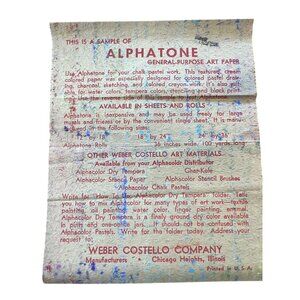 THIS IS A SAMPLE OF
ALPHATONE
GENERAL-PURPOSE ART PAPER
Use Alphatone for your chalk pastel work. This textured, cream
colored paper was especially prepared for colored pastel draw-
ing, charcoal sketching, and colored crayon work. It is also suit-
able for water colors, tempera colors, stenciling and block print-
ing. Use the reverse side of the
AVAILABLE IN SHEETS AND ROLLS
Alphatone is inexpensive and may be used freely for large
murals and friezes or by the convenient single sheet. It is manu-
factured in the following sizes:
18" by 24" 24" by 36"
Alphatone Rolls 36 inches wide, 100 yards long
OTHER WEBER COSTELLO ART MATERIALS
Available from your Alphacolor Distributor
Alphacolor Dry Tempera Char-Kole
Alphacolor Stencil Paper Alphacolor Stencil Brushes
Alphacolor Chalk Pastels
Write for "How to Use Alphacolor Dry Tempera" Folder. Tells
you how to mix Alphacolor for many types of art work—textile
painting, oil painting, water color, finger painting, enamel.
Alphacolor Dry Tempera is a finely ground dry color available
in pints and one-pound cans. It will not crack, chip or
flake. Write for the folder today. Address your
request to:
WEBER COSTELLO COMPANY
Manufacturers • Chicago Heights, Illinois
Printed in U. S. A.